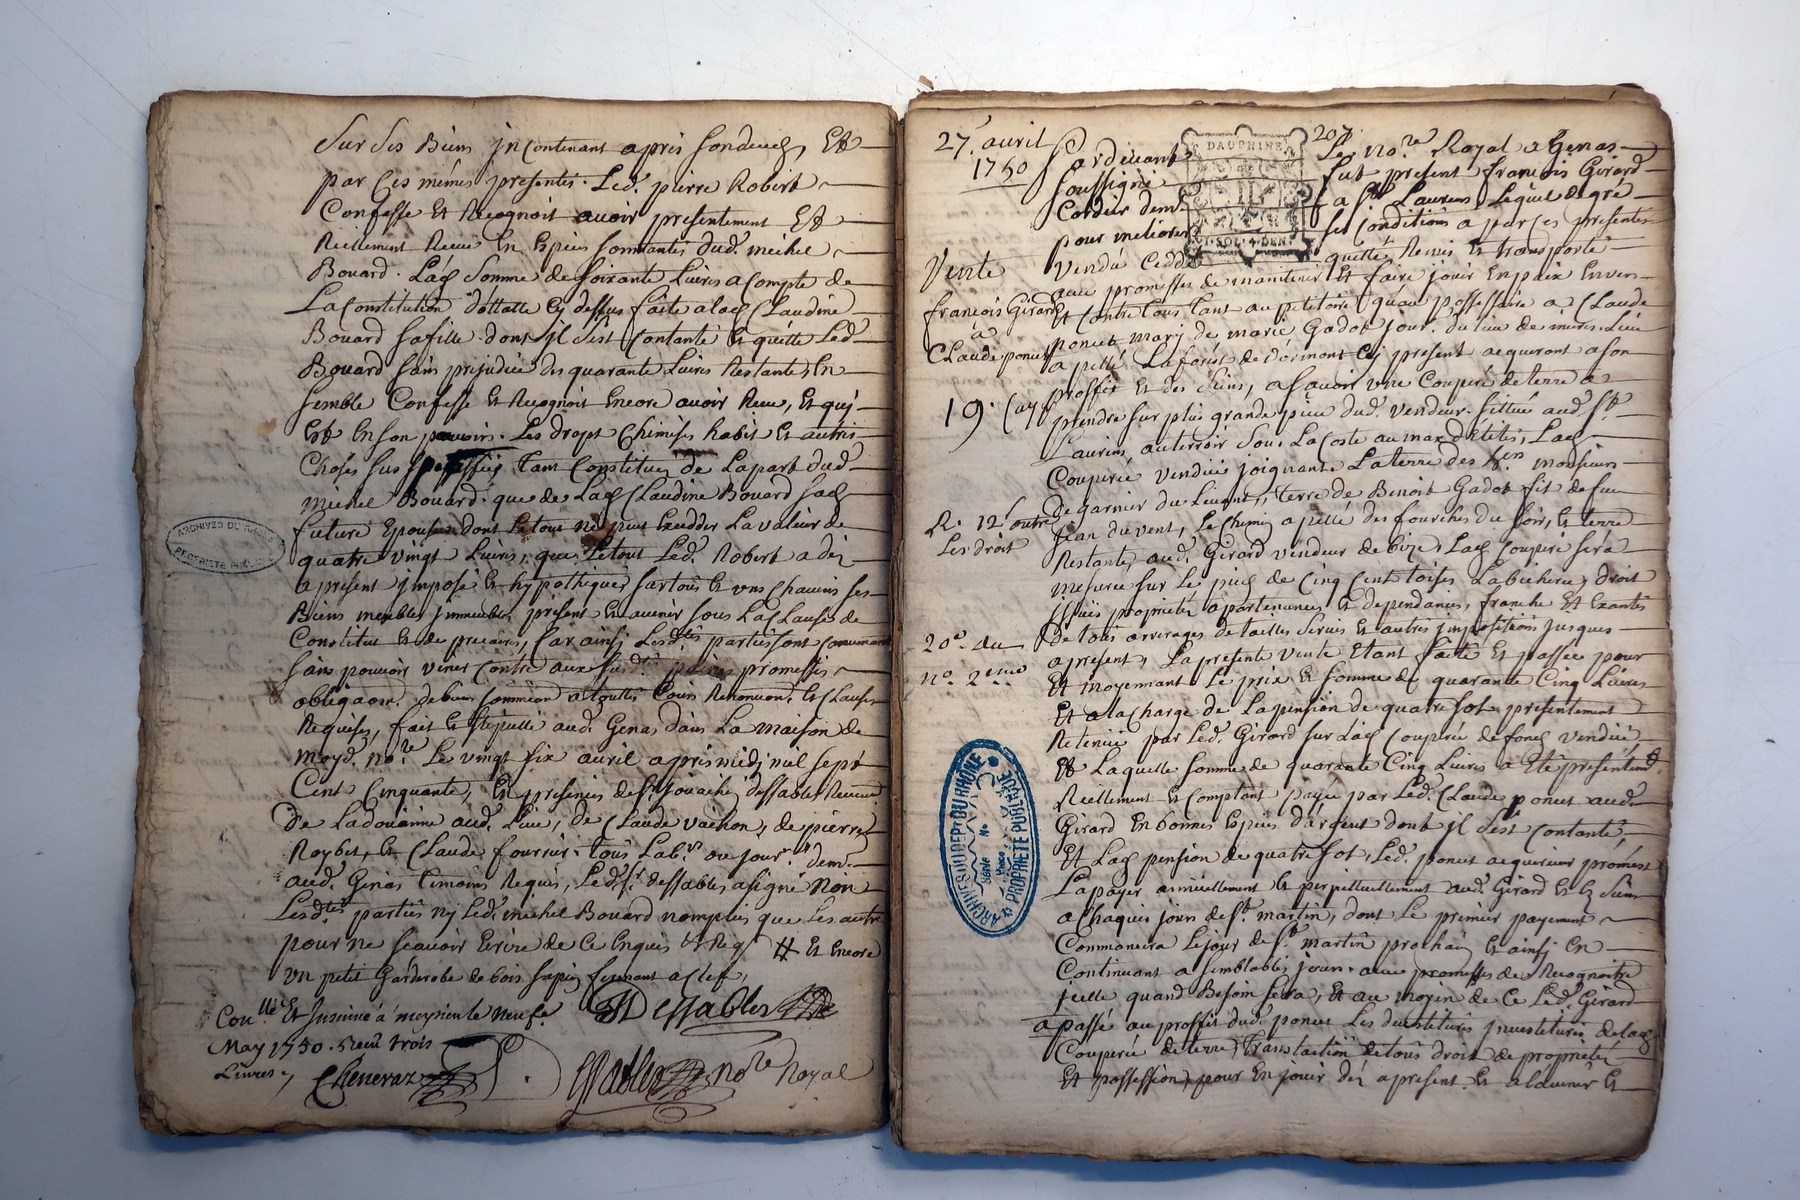 Sur ses Biens jncontinant après son deceds, Et
par ces mêmes presentes. Led. pierre Robert
Confesse Et Recognoit avoir presentement Et
Reellement Receu En Espèces sonnantes dud. michel
Bouard. Lad. Somme de soixante Livres a Compte de
La Constitution dottalle cy dessus faite a lad. Claudine
Bouard sa fille dont jl s'est Contanté Et quitte Led.
Bouard sans prejudice des quarante Livres Restante, En
semble Confesse Et Recognoit Encore avoir Receu, Et qui
Est En son pouvoir. Les drops Chemises habit Et autres
Choses sus Tant Constitués de La part dud.
michel Bouard. que de Lad. Claudine Bouard sad.
future Epouse dont Le tout ne peut Excedder La valeur de
quatre vingt Livres, que Le tout Led. Robert a dez
a present jmposé Et hypothequé sur tous Et uns chacuns ses
Biens meubles jmmeubles present Et avenir sous La Clause de
Constitut Et de precaire, Car ainsi Lesd. parties sont Convenues
sans pouvoir venir Contre aux susd. promesses
obligaon. de biens soumission a touttes Cours Renonciaon. Et Clauses
Requises, fait Et stipullé aud. Genas dans La maison de
moyd. nore. Le vingt six avril apres midj mil sept
Cent Cinquante, En presences de sr. dessables Receveur
De La doüanne aud. Lieu, de Claude vachon, de pierre
Roybet, Et Claude fournier tous Labrs. ou jourrs. dem.
aud. Genas temoins Requis, Led. sr. dessables a signé Non
Lesd. parties ny Led. michel Bouard nomplus que Les autre
pour ne sçavoir Ecrire de Ce Enquis Et Reqs. # Et Encore
un petit Garderobe de bois sapin fermant a clef,
Dessables
Conlle. Et Insinué à meysieu le neufe.
May 1750. Receu trois
Livres.
Cheneraz
Essables nore Royal
ARCHIVES DU RHONE
PROPRIETE PUBLIQUE
27. avril
1750
207
DAUPHINE
1. SOL. 4. DEN.
Pardevant Le nore. Royal a Genas
soussigné fut present françois Girard
Cordier dem. a St. Laurens Lequel de gré
pour meliorer ses conditions a par ces presentes
Vendu Ceddé quitté, Remis Et transporté
Vente
avec promesses de maintenir Et faire jouir En paix Envers
françois Girard
Et Contre tous tant au petitoire qu'au possessoire a Claude
à
Claude poncet
poncet marj de marie Gadot jour. du lieu de mures. Lieu
apellé La forest de dormont cy present acquerant a son
proffit Et des siens, a sçavoir une Couperé de terre a
19.
prendre sur plus grande piece dud. vendeur. sittué aud. St.
Laurens, au terroir sous La Coste au mas d'Etites, Lad.
Couperée vendüe joignant La terre des monsieur
degarnier du Levant, terre de Benoit Gadot fit de feu
R. 12s outre
Les droit
jean du vent, Le Chemin apellé des fourches du soir, Et terre
Restante, aud. Girard vendeur de bize, Lad. Couperé sera
mesurée sur Le pied de Cinq Cent toises La bicherée, droit
jssües proprieté apartenances Et dependances, franche Et Exantes
20e. du
no. 2eme
de tous arrerages de tailles servis Et autres jmpositions jusques
a present, La presente vente Etant faite Et passée pour
Et moyennant Le prix Et somme de quarante Cinq Livres
Et a La Charge de La pension de quatre sol, presentement
Retenüe par Led. Girard sur Lad. Couperée de fond vendüe
Et Laquelle somme de quarante Cinq Livres a Eté presentemt.
Reellement Et Comptant payée par Led. Claude poncet aud.
Girard En bonnes Especes d'argent dont jl s'est Contanté,
Et Lad. pension de quatre sol, Led. poncet acquereur promet
La payer annuellement Et perpetuellement aud. Girard Et Es siens
a Chaques jours de St. martin, dont Le premier payement
Commancera Le jour de St. martin prochain Et ainsi En
Continuant a semblables jours. avec promesses de Recognoitre
jcelle quand Besoin sera, Et au moyen de Ce Led. Girard
a passé au proffit dud. poncet Les devestitures jnvestitures de lad.
Couperée de terre, translaction de tous droit de proprieté
Et possession, pour En jouir dez a present Et a L'avenir Et
ARCHIVES DU DEPt DU RHONE
PROPRIETE PUBLIQUE
Série
No